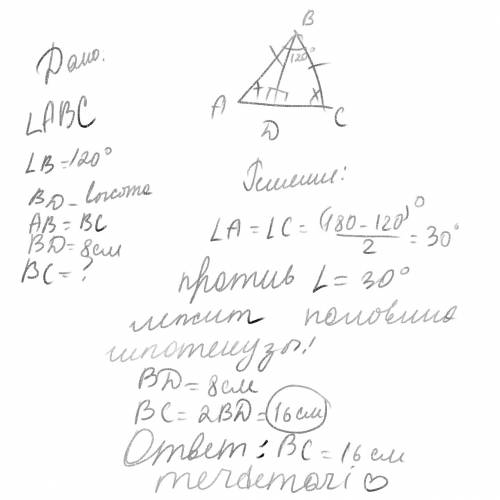 B
120°
A
C
D
Дано.
LABC
LB=120°
BD - высота
AB = BC
BD = 8см
BC = ?
Решение:
LA = LC = (180 - 120)° / 2 = 30°
против L = 30°
лежит половина
гипотенузы!
BD = 8см
BC = 2BD = 16см
Ответ: BC = 16 см
merdemari ♡